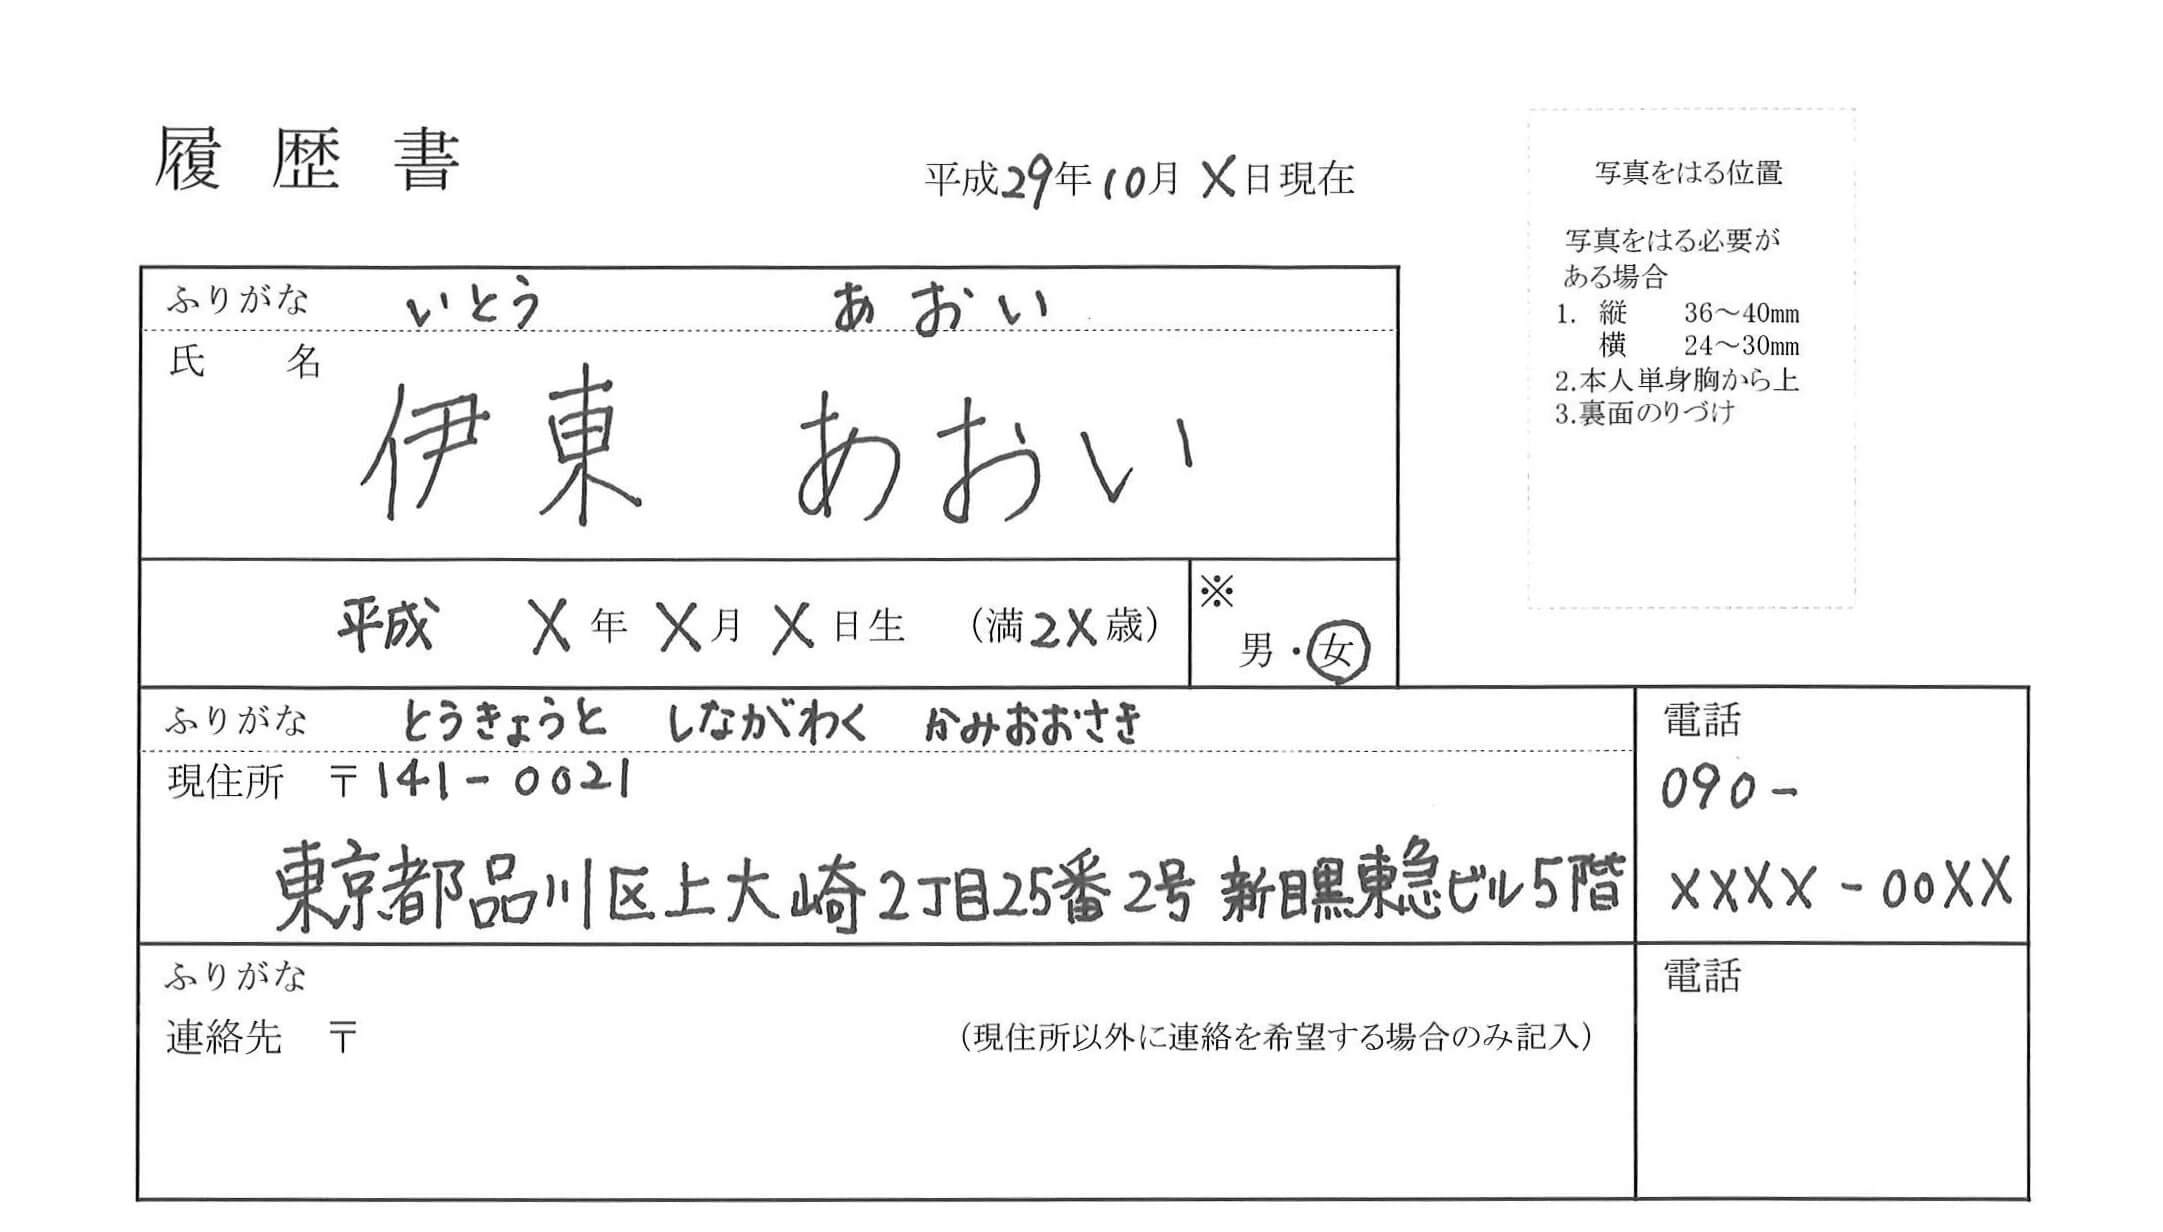 履歴書
平成29年10月X日現在
写真をはる位置
写真をはる必要が
ある場合
1. 縦 36～40mm
横 24～30mm
2.本人単身胸から上
3.裏面のりづけ
ふりがな いとう あおい
氏名
伊東 あおい
平成 X年X月X日生 （満2X歳）
※
男・女
ふりがな とうきょうと しながわく かみおおさき
現住所 〒141-0021
東京都品川区上大崎2丁目25番2号 新目黒東急ビル5階
電話
090-
XXXX-00XX
ふりがな
連絡先 〒 （現住所以外に連絡を希望する場合のみ記入）
電話